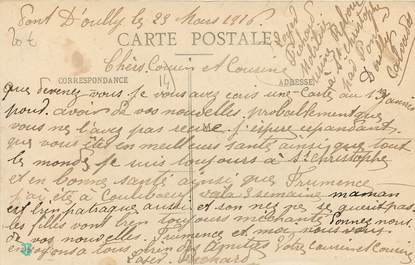 Pont D'ouilly le 23 Mars 1916
CARTE POSTALE
Chèrs Cousin et Cousine
CORRESPONDANCE
ADRESSE
que devenez vous je vous avez ecris une Carte au 1er Janvier
pour avoir de vos nouvelles probablement que
vous ne l'avez pas recue j'espère cependant
que vous êtes en meilleure santé ainsi que tout
le monde je suis toujours à St Christophe
et en bonne santé ainsi que Frumence
à Couliboeuf voilà 3 semaine maman
est bien patraque aussi et son nez ne se guérit pas
les filles vont bien toujours méchante Donnez nous
de vos nouvelles Frumence et moi nous vous
envoyons a tous bien des amitiés Votre cousin et Cousine
Roger Richard
Roger
Richard
Usine
à St Christophe
par Pont
D'ouilly
Calvados